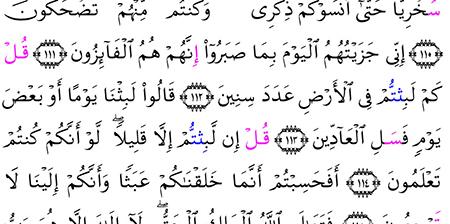 سُخْرِيًّا حَتَّىٰٓ أَنسَوْكُمْ ذِكْرِى وَكُنتُم مِّنْهُمْ تَضْحَكُونَ
﴿١١٠﴾ إِنِّى جَزَيْتُهُمُ ٱلْيَوْمَ بِمَا صَبَرُوٓا۟ إِنَّهُمْ هُمُ ٱلْفَآئِزُونَ ﴿١١١﴾ قُلْ
كَمْ لَبِثتُّمْ فِى ٱلْأَرْضِ عَدَدَ سِنِينَ ﴿١١٢﴾ قَالُوا۟ لَبِثْنَا يَوْمًا أَوْ بَعْضَ
يَوْمٍ فَسَلِ ٱلْعَآدِّينَ ﴿١١٣﴾ قُلْ إِن لَّبِثتُّمْ إِلَّا قَلِيلًا ۖ لَّوْ أَنَّكُمْ كُنتُمْ
تَعْلَمُونَ ﴿١١٤﴾ أَفَحَسِبْتُمْ أَنَّمَا خَلَقْنَٰكُمْ عَبَثًا وَأَنَّكُمْ إِلَيْنَا لَا